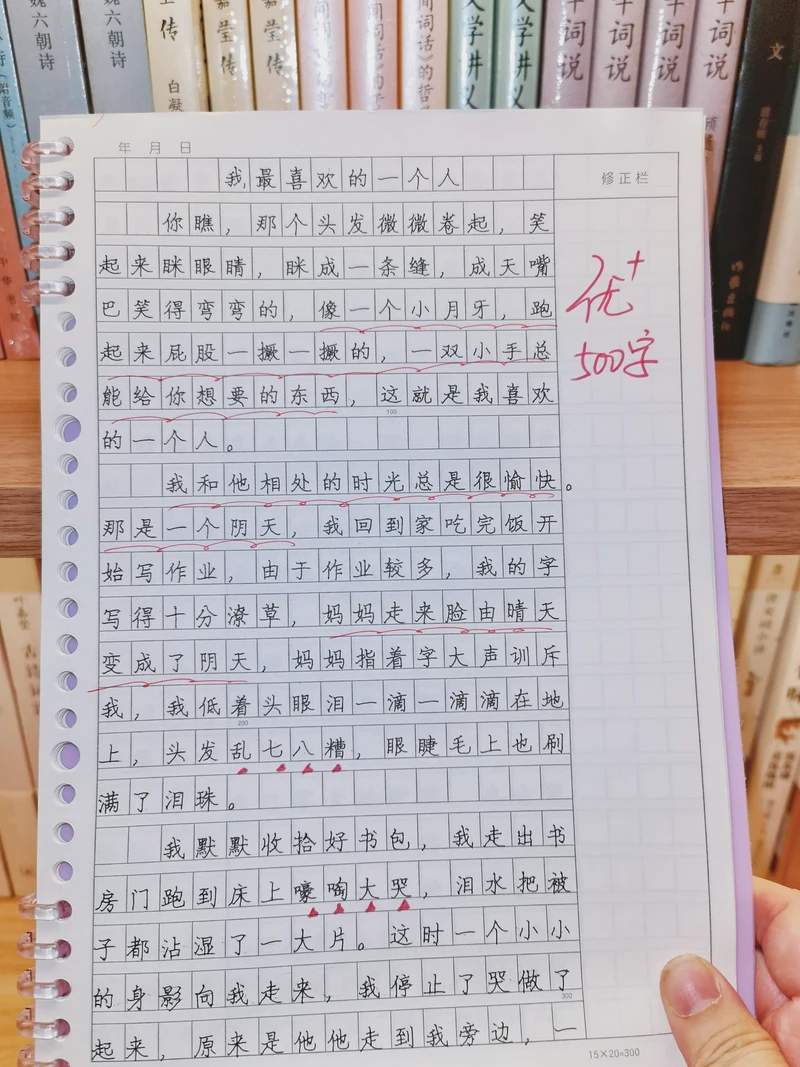 魏六朝诗
魏六朝诗
传
白凝
嘉莹传
嘉莹传
间词话
间词话
词话》的哲
文学讲义
文学讲义
十词说
十词说
十词说
十词说
文
中华书局
年 月 日
修正栏
我最喜欢的一个人
你瞧，那个头发微微卷起，笑
起来眯眼睛，眯成一条缝，成天嘴
巴笑得弯弯的，像一个小月牙，跑
起来屁股一撅一撅的，一双小手总
能给你想要的东西，这就是我喜欢
100
的一个人。
我和他相处的时光总是很愉快。
那是一个阴天，我回到家吃完饭开
始写作业，由于作业较多，我的字
写得十分潦草，妈妈走来脸由晴天
变成了阴天，妈妈指着字大声训斥
我，我低着头眼泪一滴一滴滴在地
200
上，头发乱七八糟，眼睫毛上也刷
满了泪珠。
我默默收拾好书包，我走出书
房门跑到床上嚎啕大哭，泪水把被
子都沾湿了一大片。这时一个小小
的身影向我走来，我停止了哭做了
300
起来，原来是他他走到我旁边，一
15×20=300
优+
500字